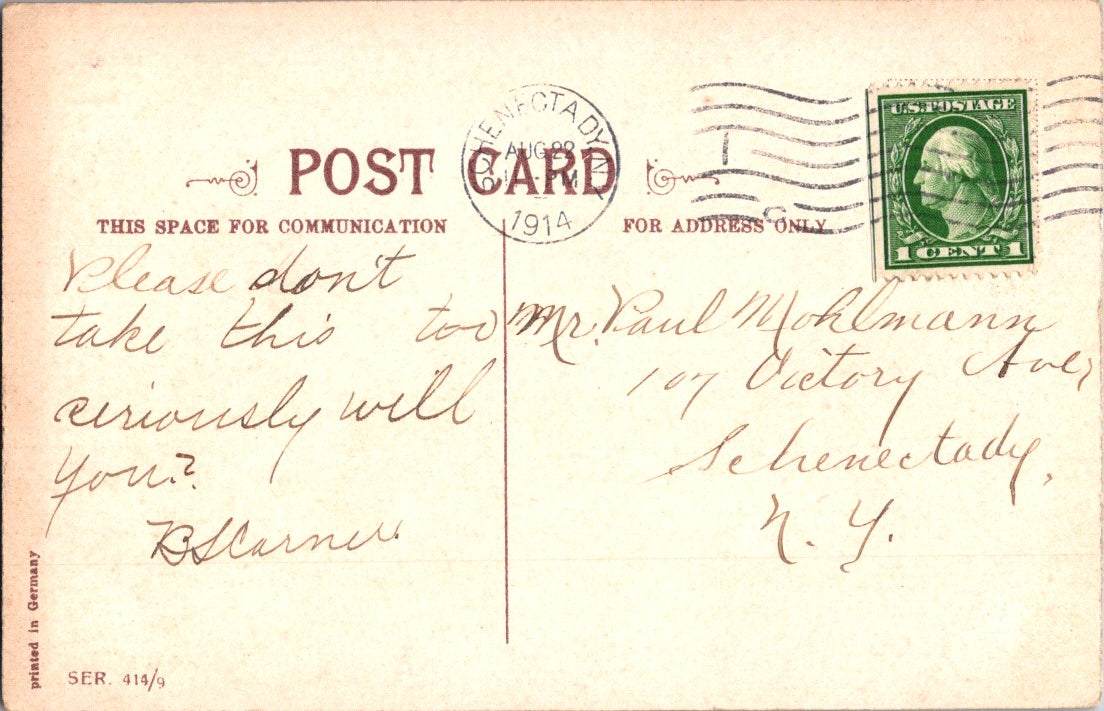 POST CARD
SCHENECTADY, N.Y.
AUG 22
PM
1914
U.S. POSTAGE
1 CENT 1
THIS SPACE FOR COMMUNICATION
FOR ADDRESS ONLY
Please don't
take this too
seriously will
you?
Mr. Paul Mohlmann
107 Victory Ave,
Schenectady,
N. Y.
printed in Germany
SER. 414/9